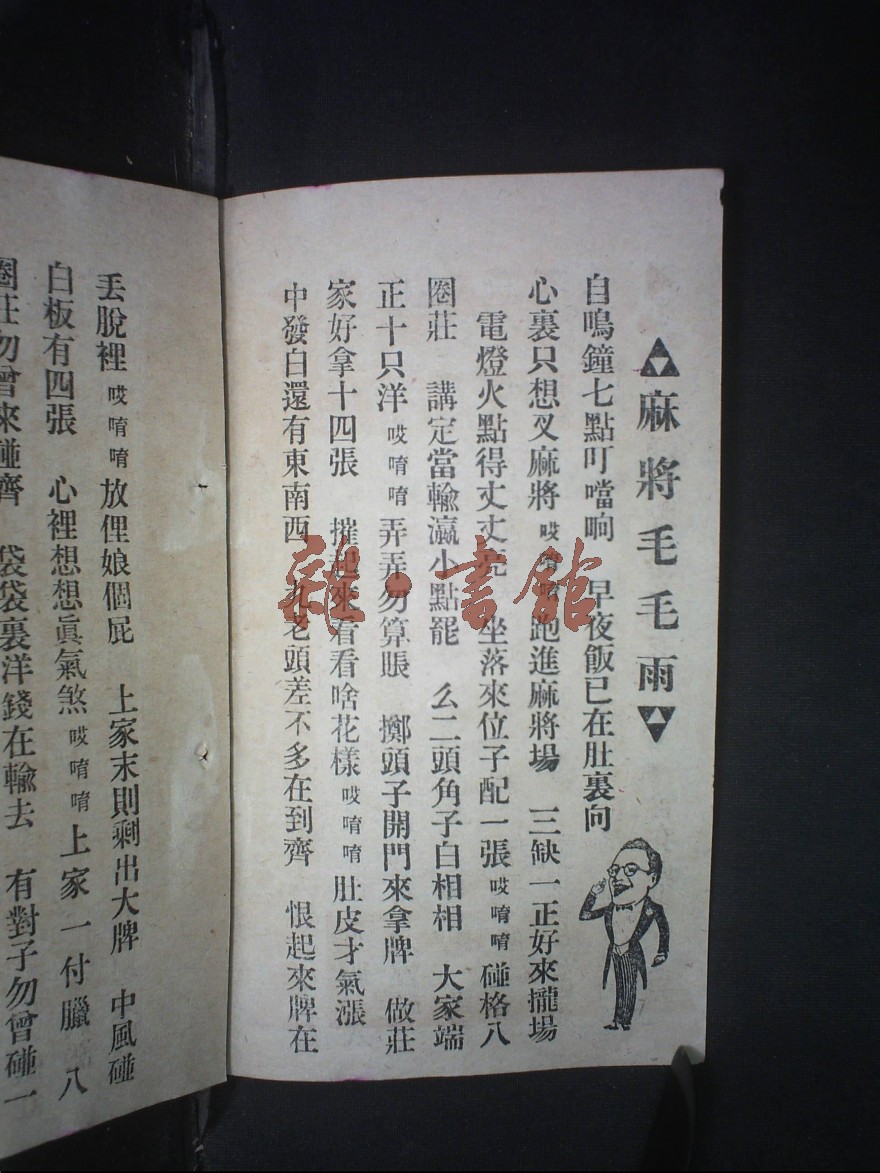 麻將毛毛雨
自鳴鐘七點叮噹晌　早夜飯已在肚裏向
心裏只想叉麻將哎唷唷跑進麻將場　三缺一正好來攏場
電燈火點得丈丈亮　坐落來位子配一張哎唷唷碰格八
圈莊　講定當輸瀛小點罷　么二頭角子白相相　大家端
正十只洋哎唷唷弄弄勿算賬　擲頭子開門來拿牌　做莊
家好拿十四張　摧起來看看啥花樣哎唷唷肚皮才氣漲
中發白還有東南西　九老頭差不多在到齊　恨起來牌在
丟脫裡哎唷唷放俚娘個屁　上家末則剩出大牌　中風碰
白板有四張　心裡想想眞氣煞哎唷唷上家一付臘　八
圈莊勿曾來碰齊　袋袋裏洋錢在輸去　有對子勿曾碰一
雜·書館